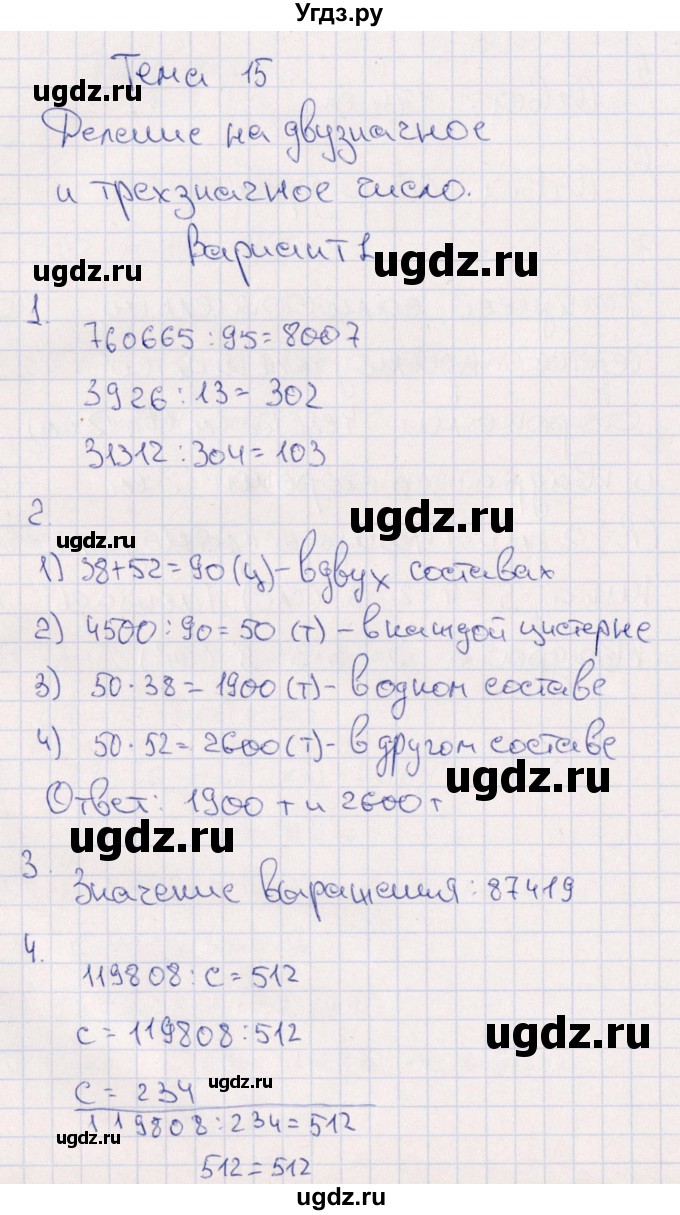 Угдз.ру
Тема 15
ugdz.ru
Деление на двузначное
и трехзначное число.
Вариант 1
ugdz.ru
ugdz.ru
1.
760665 : 95 = 8007
3926 : 13 = 302
31312 : 304 = 103
2.
ugdz.ru
ugdz.ru
1) 38+52=90 (ц) - в двух составах
2) 4500 : 90 = 50 (т) - в каждой цистерне
3) 50 · 38 = 1900 (т) - в одном составе
4) 50 · 52 = 2600 (т) - в другом составе
ugdz.ru
Ответ: 1900 т и 2600 т
ugdz.ru
3.
Значение выражения: 87419
4.
119808 : с = 512
с = 119808 : 512
ugdz.ru
с = 234
ugdz.ru
119808 : 234 = 512
ugdz.ru
512 = 512
ugdz.ru